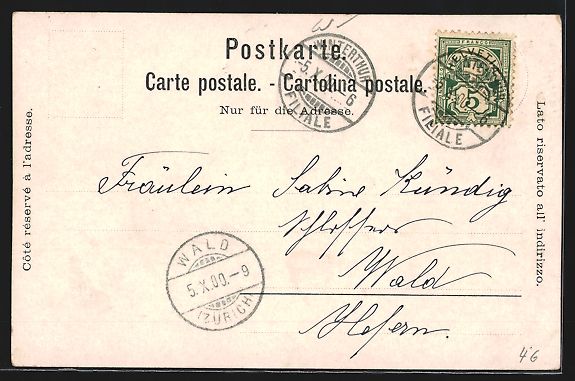 Postkarte.
Carte postale. - Cartolina postale.
Nur für die Adresse.
Côté réservé à l'adresse.
Lato riservato all' indirizzo.
WINTERTHUR
5.X.00.-6
FILIALE
FRANCO
5
FILIALE
Fräulein Sabine Kündig
Wald
WALD
5.X.00.-9
(ZÜRICH)
46